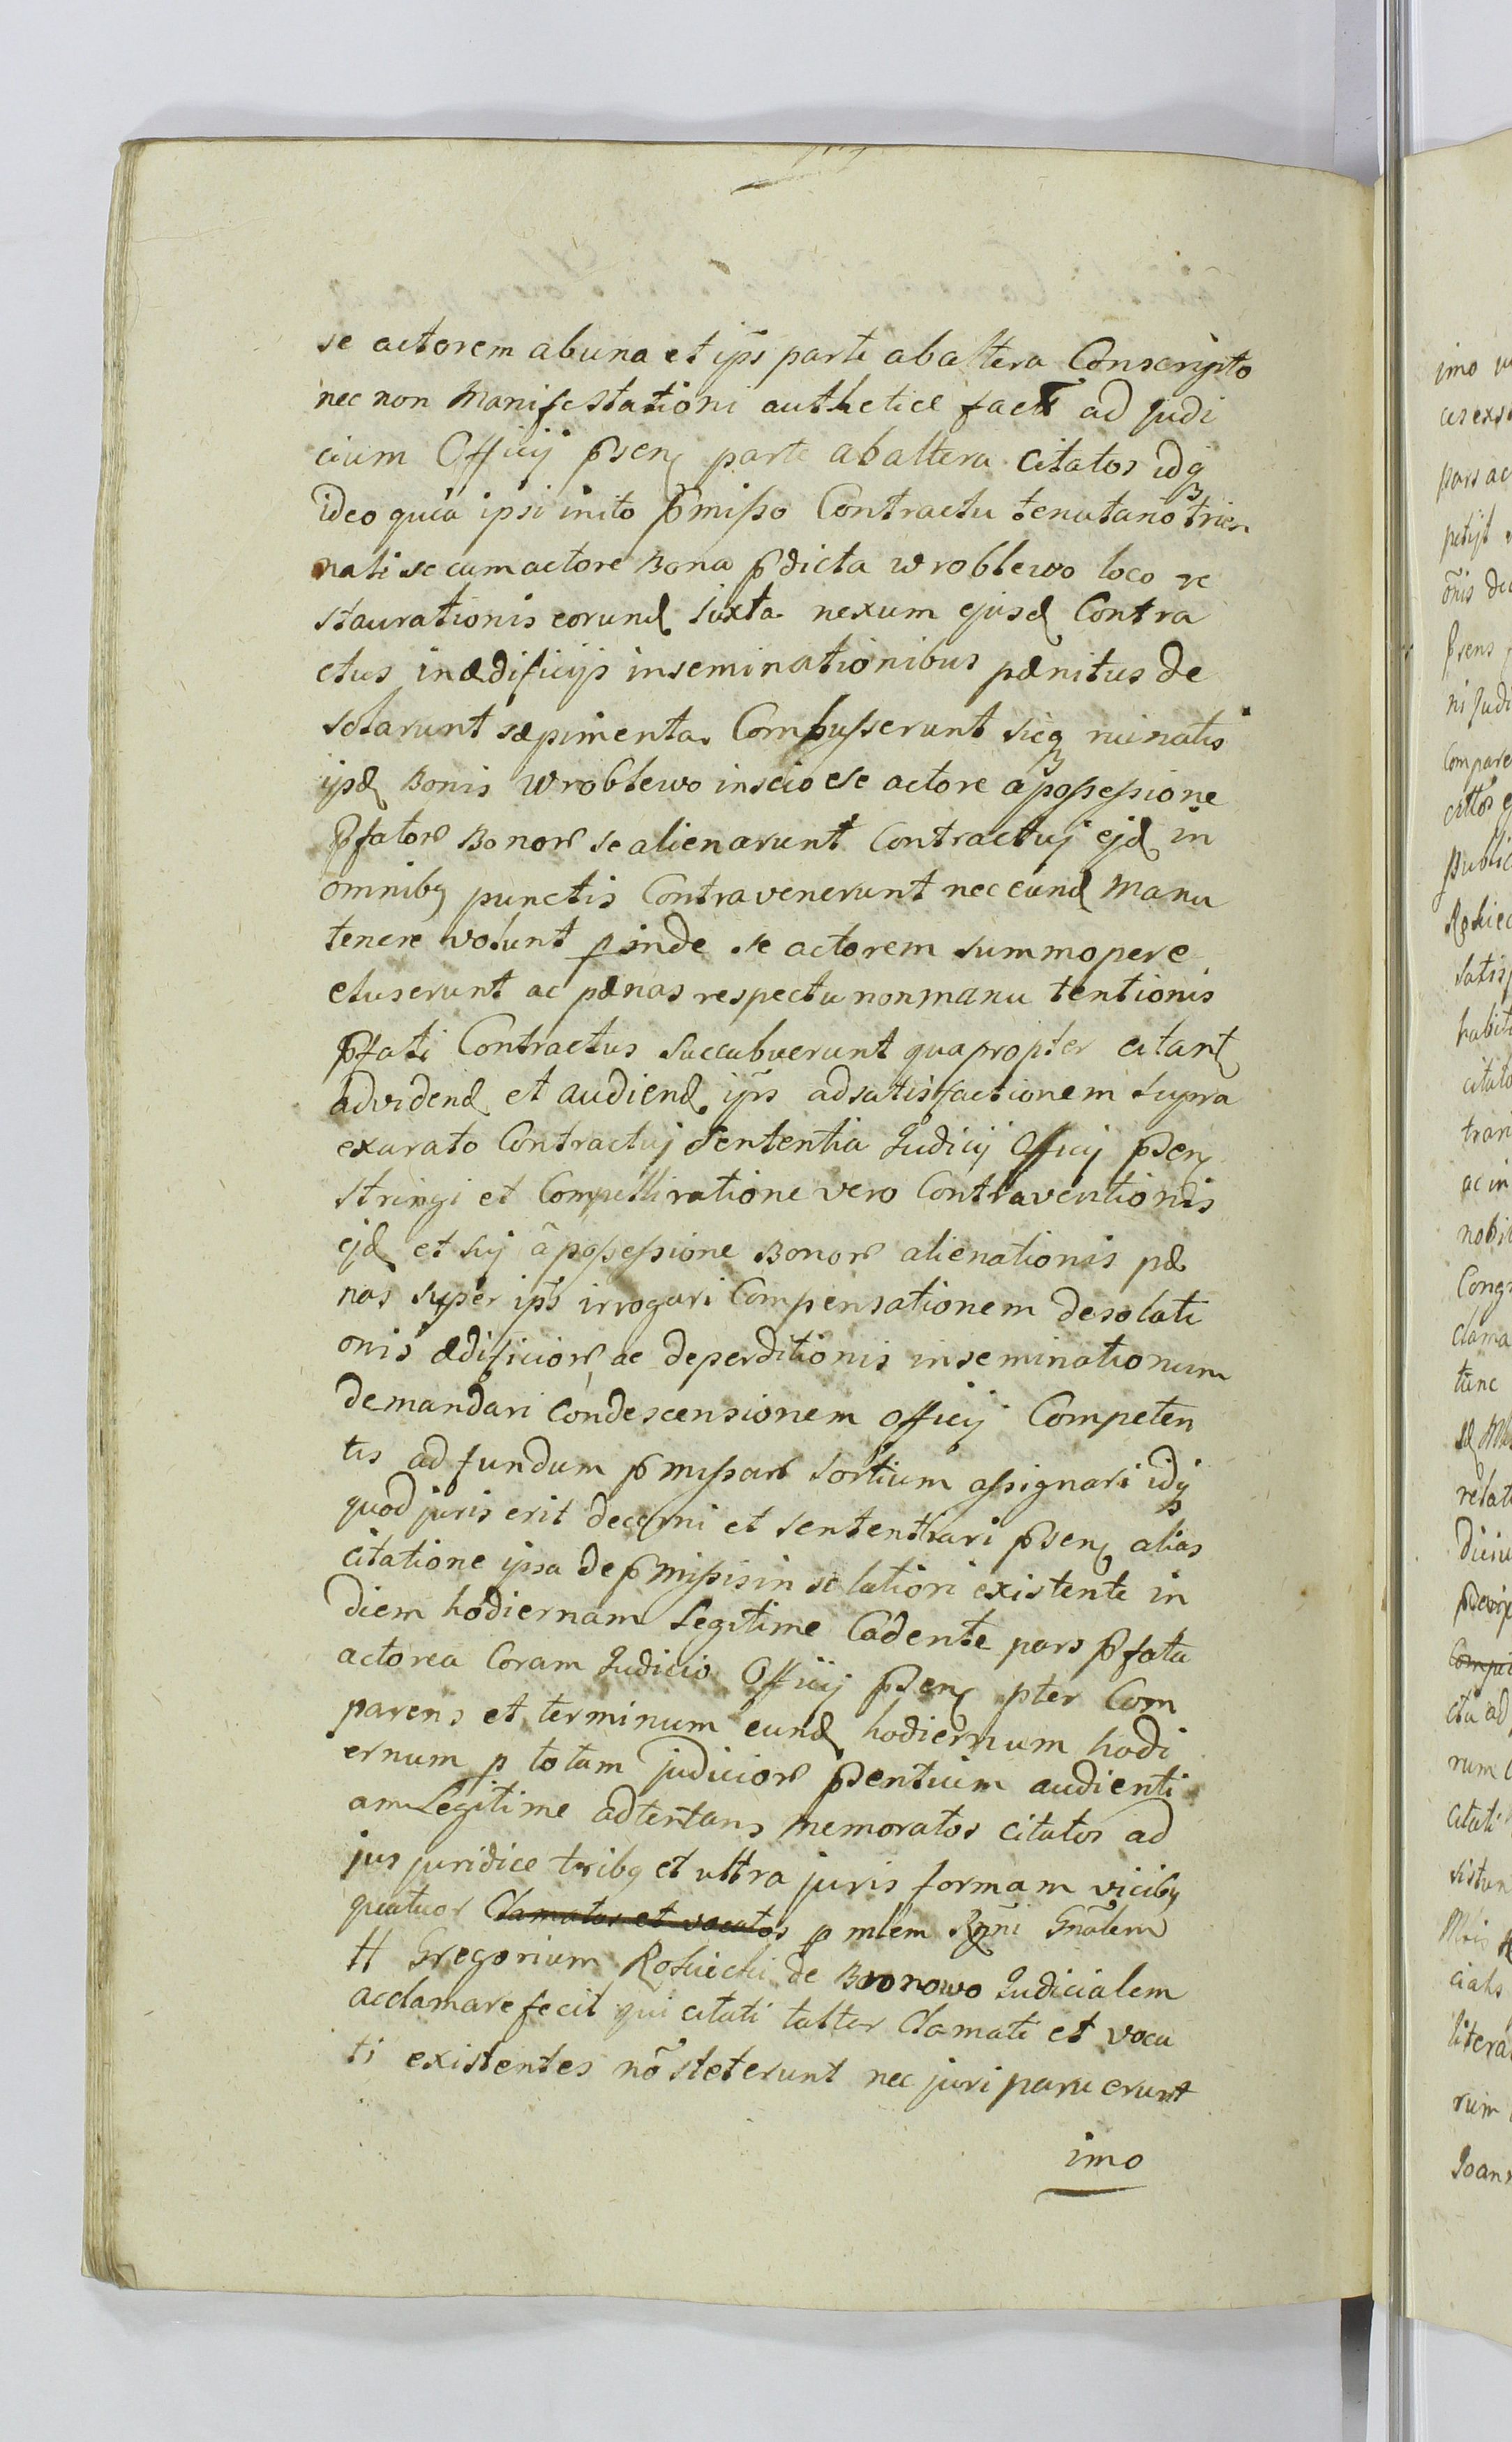 se actorem abuna et ip̃s parte abaltera Conscripto
nec non Manifestationi authetice factæ ad Judi
cium Officij p̃sen parte abaltera citatos idq
ideo quia ipsi inito p̃misso Contractu tenutario trien
nali se cum actore Bona p̃dicta Wroblewo loco re
staurationis eorund Juxta nexum ejusd Contra
ctus inædificijs inseminationibus pænitus de
solarunt sæpimenta Combusserunt sicq ruinatis
ijsd Bonis Wroblewo inscio se actore a possessione
p̃fator Bonor se alienarunt Contractuj ejd in
omnibq punctis Contravenerunt nec eund Manu
tenere volunt pinde se actorem summopere
eluserunt ac pænas respectu nonmanu tentionis
p̃fati Contractus succubuerunt quapropter citant
advidend et audiend ip̃s adsatisfactionem supra
exarato Contractuj Sententia Judicij Officij p̃sen
stringi et Compelli ratione vero Contraventionis
ejd et suj ã possessione Bonor alienationis pæ
nas super ip̃s irrogari Compensationem desolati
onis ædificior ac deperditionis inseminationum
demandari Condescensionem Officij Competen
tis ad fundum p̃missar sortium assignari idq
quod juris erit decerni et sententiari p̃sen alias
citatione ipsa de p̃missis in se latiori existente in
diem hodiernam Legitime Cadente pars p̃fata
actorea Coram Judicio Officij p̃sen pter Com
parens et terminum eund hodiernum hodi
ernum p totam judicior p̃sentium audienti
am Legitime adtentans memoratos citatos ad
jus juridice tribq et ultra juris formam vicibq
quatuor Clamatos et vocatos p mlem Rgñi Gñalem
H Gregorium Rosciecki de Boonowo Judicialem
acclamare fecit qui citati talter Clamati et voca
ti existentes nõ steterunt nec juri paruerunt
imo